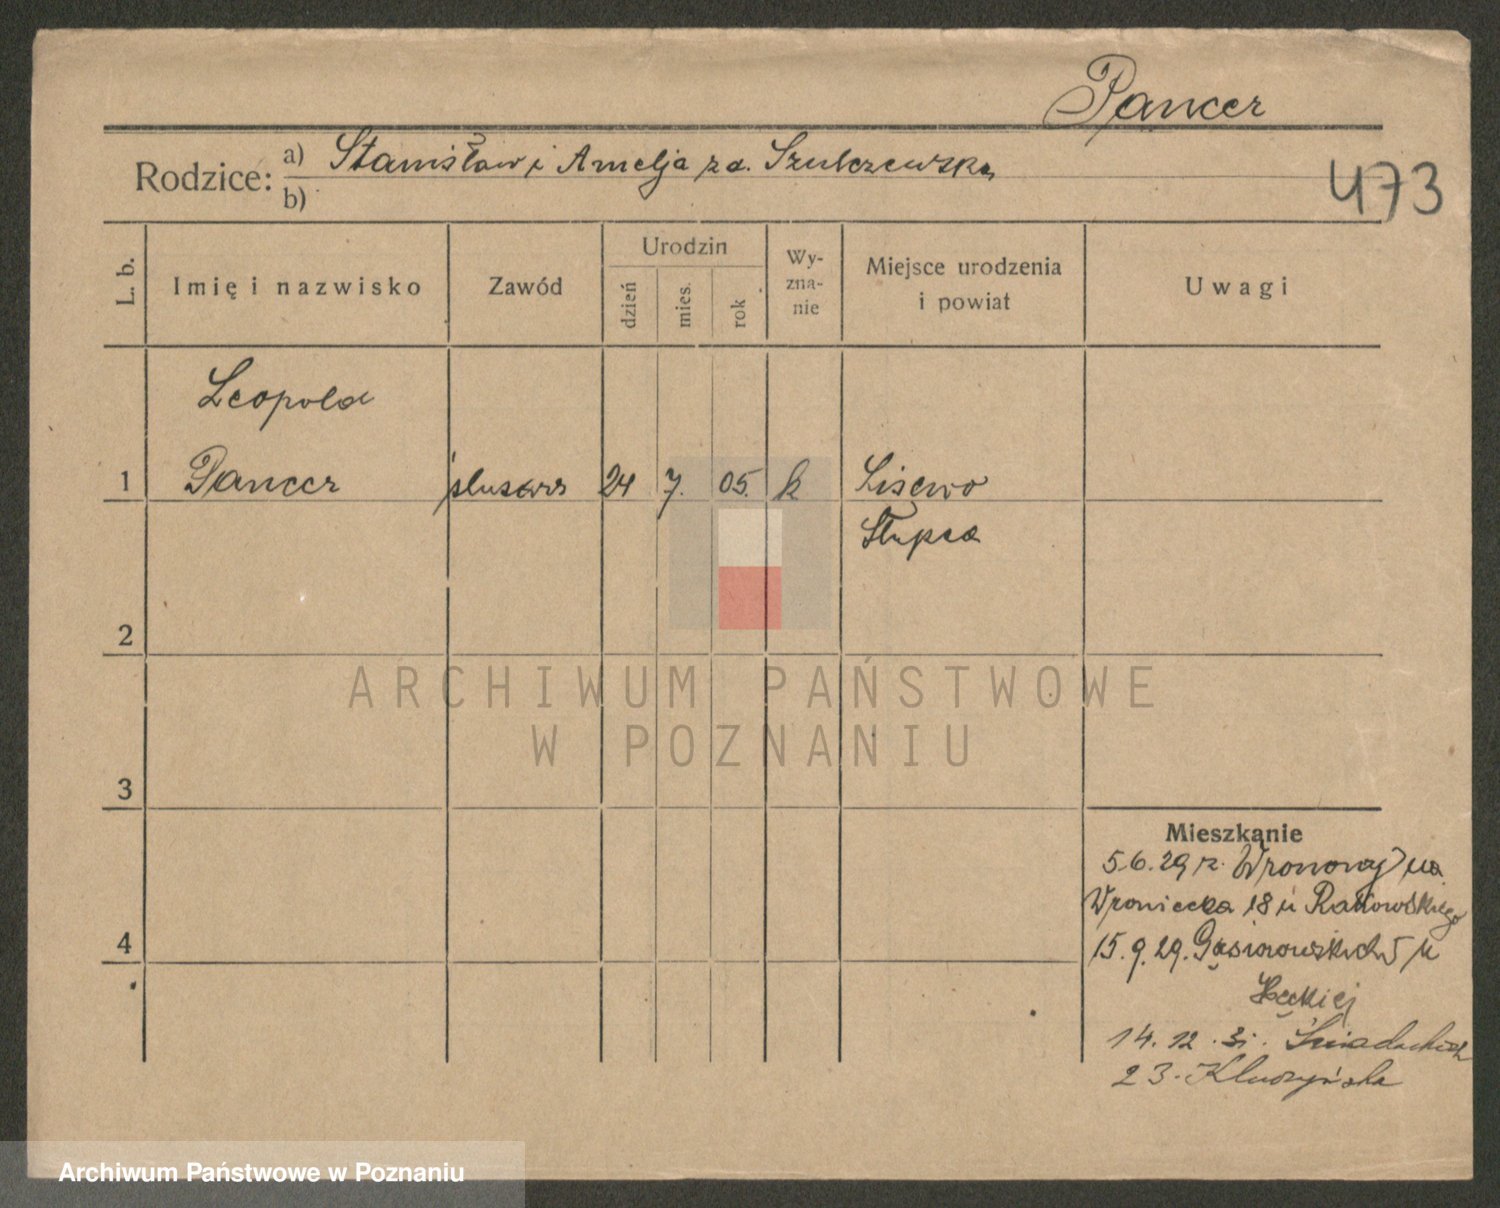 Pancer
Rodzice: a) Stanisław i Amelja zd. Szulczewska
b)
473
L. b.
Imię i nazwisko
Zawód
Urodzin
dzień
mies.
rok
Wy-
zna-
nie
Miejsce urodzenia
i powiat
Uwagi
Leopold
1 Pancer ślusarz 24 7. 05. k Lisewo
Słupca
2
ARCHIWUM PAŃSTWOWE
W POZNANIU
3
Mieszkanie
5.6.29 r.
Wroniecka 18 u Rakowskiego
4
15.9.29. Gąsiorowskich 5 u
14.12.31. Śniadeckich
23.
Archiwum Państwowe w Poznaniu